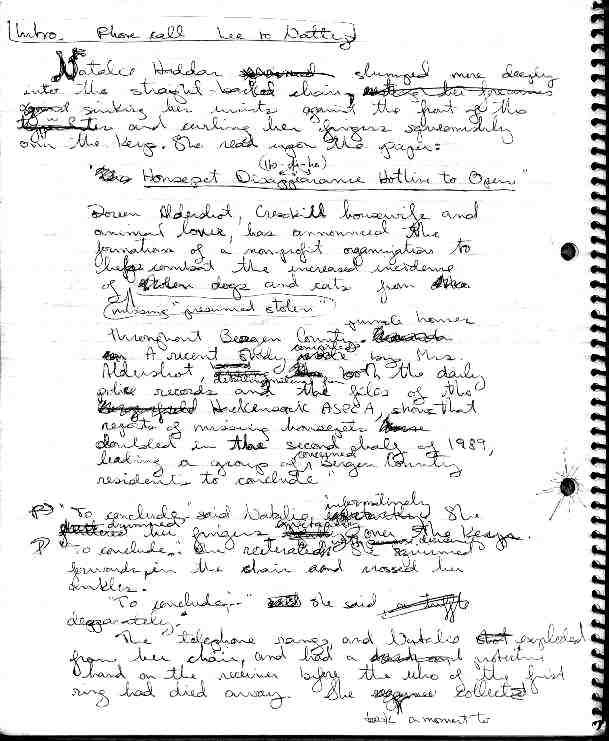 Intro. Phone call Lee to Natty
Natalie Hoddan slumped more deeply
into the straight backed chair,
sinking her wrists against the front of the
and curling her fingers squeamishly
over the keys. She read upon the paper:
(Ho-Di-Ho)
"Housepet Disappearance Hotline to Open"
Doreen Aldershot, Cresskill housewife and
animal lover, has announced the
formation of a nonprofit organization to
help combat the increased incidence
of stolen dogs and cats from
missing "presumed stolen"
throughout Bergen County.
A recent study by Mrs.
Aldershot, both the daily
police records and the files of the
Hackensack ASPCA, shows that
reports of missing housepets
doubled in the second half of 1989,
leading a group of concerned Bergen County
residents to conclude"
"To conclude" said Natalie She
drummed her fingers over the keys.
"To conclude." On reiteration she
forwards in the chair and crossed her
ankles.
"To conclude..." she said
desperately.
The telephone rang, and Natalie exploded
from her chair, and had a protective
hand on the receiver before the echo of the first
ring had died away. She collect
took a moment to